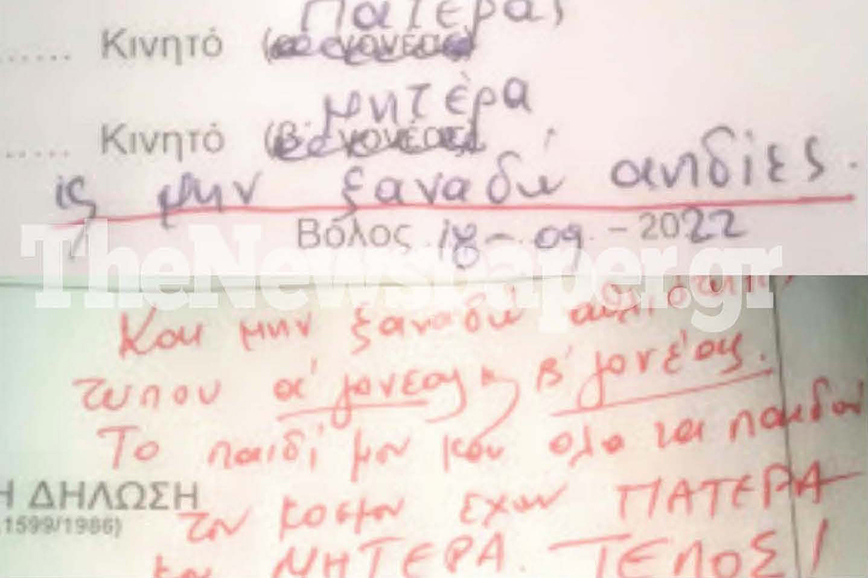 Πατέρας
...... Κινητό (α' γονέας)
μητέρα
..... Κινητό (β' γονέας)
ις μην ξαναδώ αηδίες.
Βόλος 18-09-2022
TheNewspaper.gr
Και μην ξαναδώ
τυπου α' γονεας κ β' γονέας.
Το παιδί μου και ολα τα παιδιά
Η ΔΗΛΩΣΗ
του κοσμου εχουν ΠΑΤΕΡΑ
1599/1986)
και ΜΗΤΕΡΑ. ΤΕΛΟΣ!